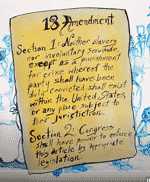 13 Amendment
Section 1: Neither slavery
nor involuntary servitude,
except as a punishment
for crime whereof the
party shall have been
duly convicted, shall exist
within the United States,
or any place subject to
their jurisdiction.
Section 2: Congress
shall have power to enforce
this article by appropriate
legislation.